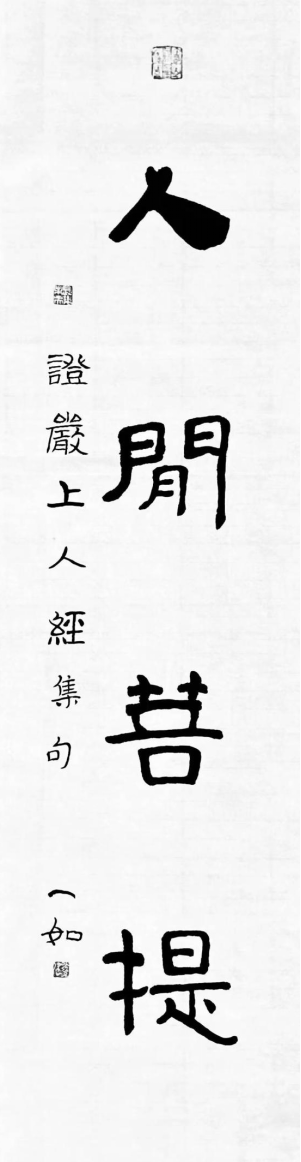 人閒菩提
證嚴上人經集句
一如